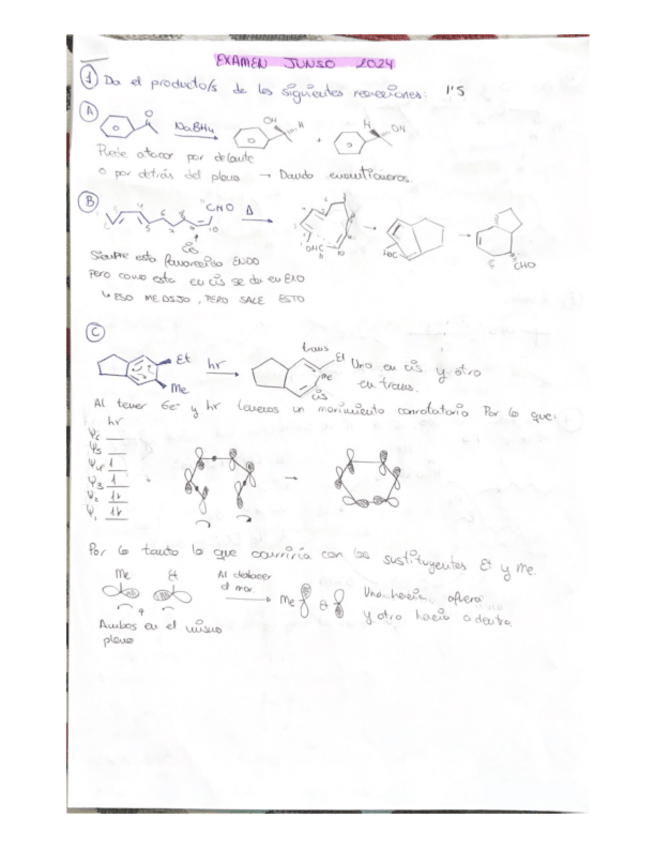 EXAMEN JUNSO 2024
① Da el producto/s de los siguientes reacciones: 1'5
A
O NaBH4 OH H + H OH
Puede atacar por delante
o por detrás del plano → Dando enantiómeros.
B
CHO Δ
10 cis OHC 10 HOC CHO
Siempre esta favorecido ENDO
Pero como esta en cis se da en EXO
↳ ESO ME DIJO, PERO SALE ESTO
C
Et Me hr trans Et Me cis Uno en cis y otro
en trans.
Al tener 6e⁻ y hr tenemos un movimiento conrotatorio Por lo que:
hr
Ψ6
Ψ5
Ψ4 1
Ψ3 1
Ψ2 1↓
Ψ1 1↓
Por lo tanto lo que ocurriría con los sustituyentes Et y Me.
Me Et Al deshacer
el mov. Me Et Uno hacia afuera
y otro hacia adentro.
Ambos en el mismo
plano